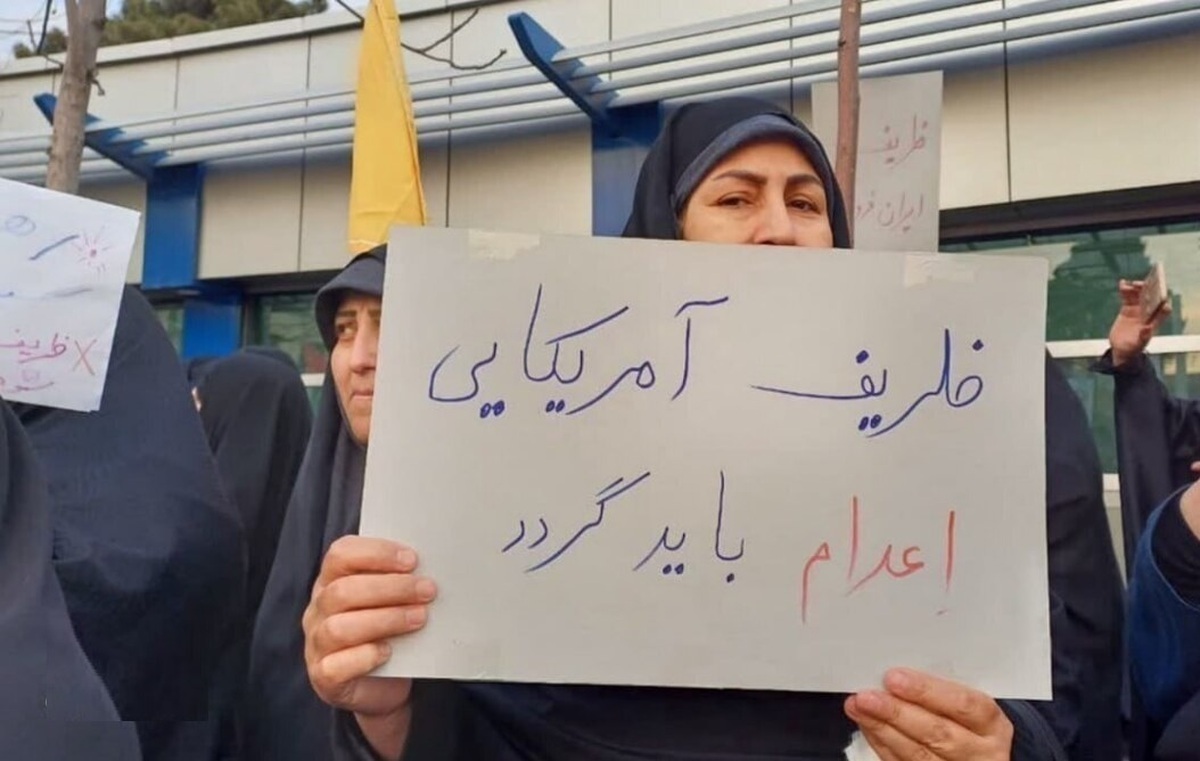 ظریف آمریکایی
إعدام باید گردد
ظریف
ایران
ظریف